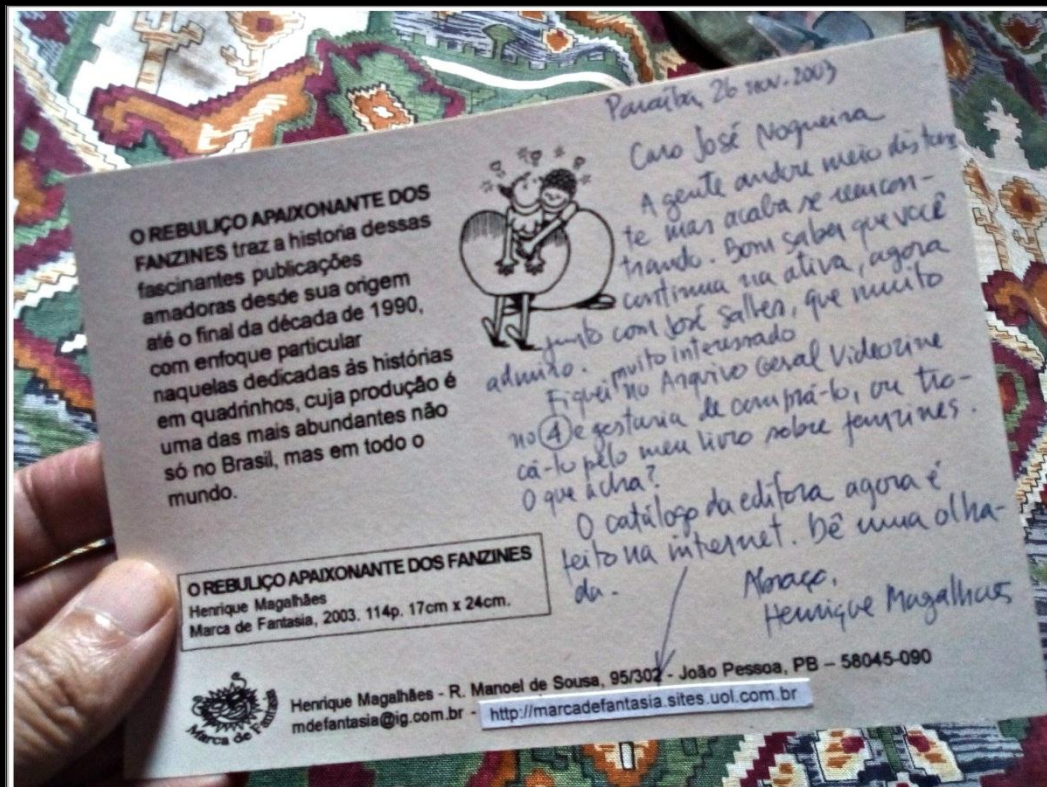 O REBULIÇO APAIXONANTE DOS
FANZINES traz a historia dessas
fascinantes publicações
amadoras desde sua origem
até o final da década de 1990,
com enfoque particular
naquelas dedicadas às histórias
em quadrinhos, cuja produção é
uma das mais abundantes não
só no Brasil, mas em todo o
mundo.
O REBULIÇO APAIXONANTE DOS FANZINES
Henrique Magalhães
Marca de Fantasia, 2003. 114p. 17cm x 24cm.
Paraíba, 26 nov. 2003
Caro José Nogueira
A gente andou meio distan
te mas acaba se reencon-
trando. Bom saber que você
continua na ativa, agora
junto com José Salles, que muito
admiro.
muito interessado
Fiquei no Arquivo Geral Videozine
nº 4 e gostaria de comprá-lo, ou tro-
cá-lo pelo meu livro sobre fanzines.
O que acha?
O catálogo da editora agora é
feito na internet. Dê uma olha-
da.
Abraço,
Henrique Magalhães
Marca de Fantasia
Henrique Magalhães - R. Manoel de Sousa, 95/302 - João Pessoa, PB – 58045-090
mdefantasia@ig.com.br - http://marcadefantasia.sites.uol.com.br